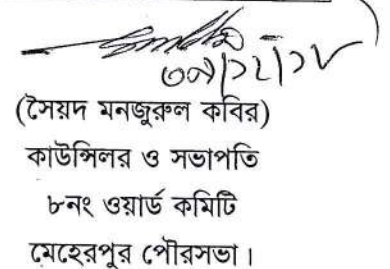 (সৈয়দ মনজুরুল কবির)
কাউন্সিলর ও সভাপতি
৮নং ওয়ার্ড কমিটি
মেহেরপুর পৌরসভা।